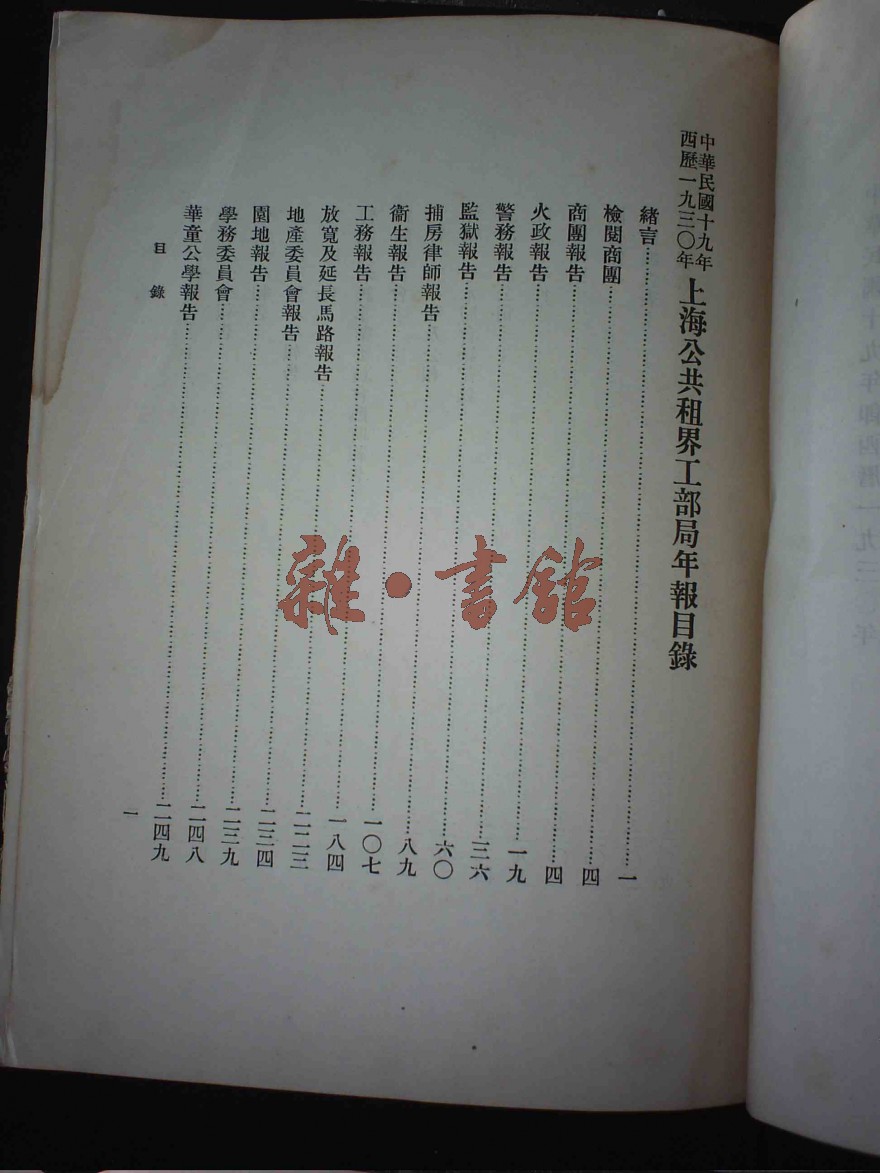 中華民國十九年
西歷一九三〇年
上海公共租界工部局年報目錄
緒言……一
檢閱商團……四
商團報告……四
火政報告……一九
警務報告……三六
監獄報告……六〇
捕房律師報告……八九
衞生報告……一〇七
工務報告……一八四
放寬及延長馬路報告……二二三
地產委員會報告……二三四
園地報告……二三九
學務委員會……二四八
華童公學報告……二四九
目錄
一
雜·書館